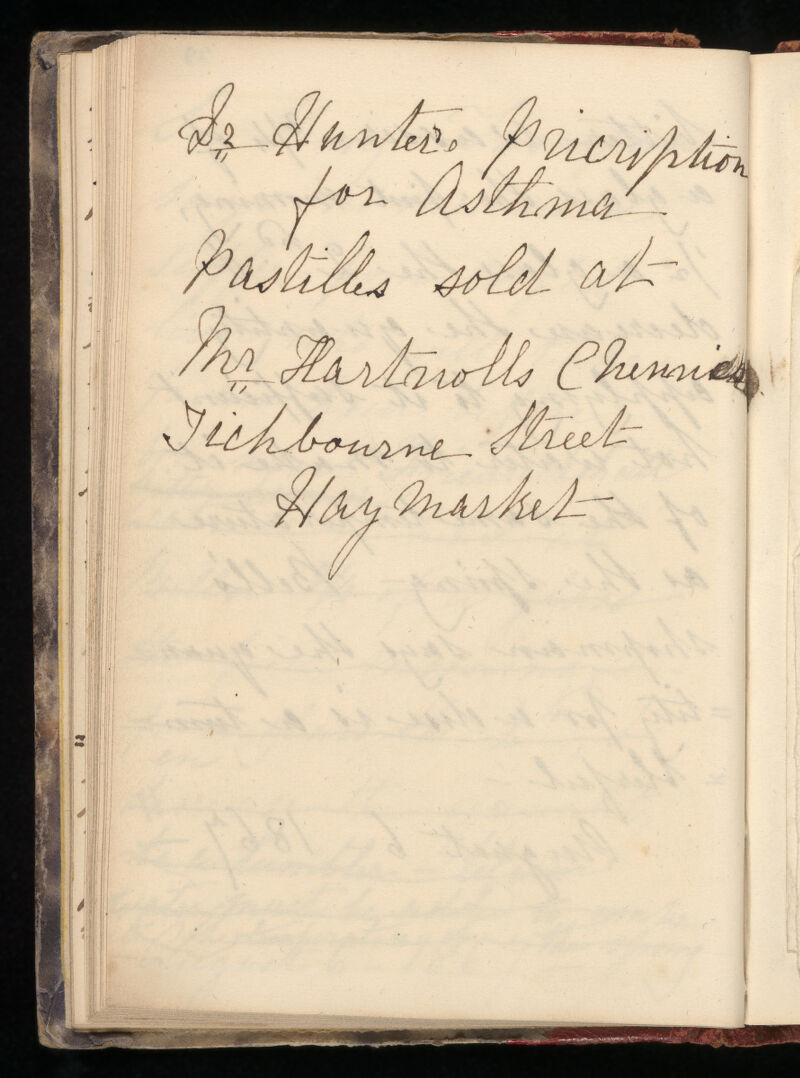 Dr Hunter's Pricription
for Asthma
Pastilles sold at
Mr Hartnolls Chemics
Tichbourne Street
Haymarket
August 6 1867